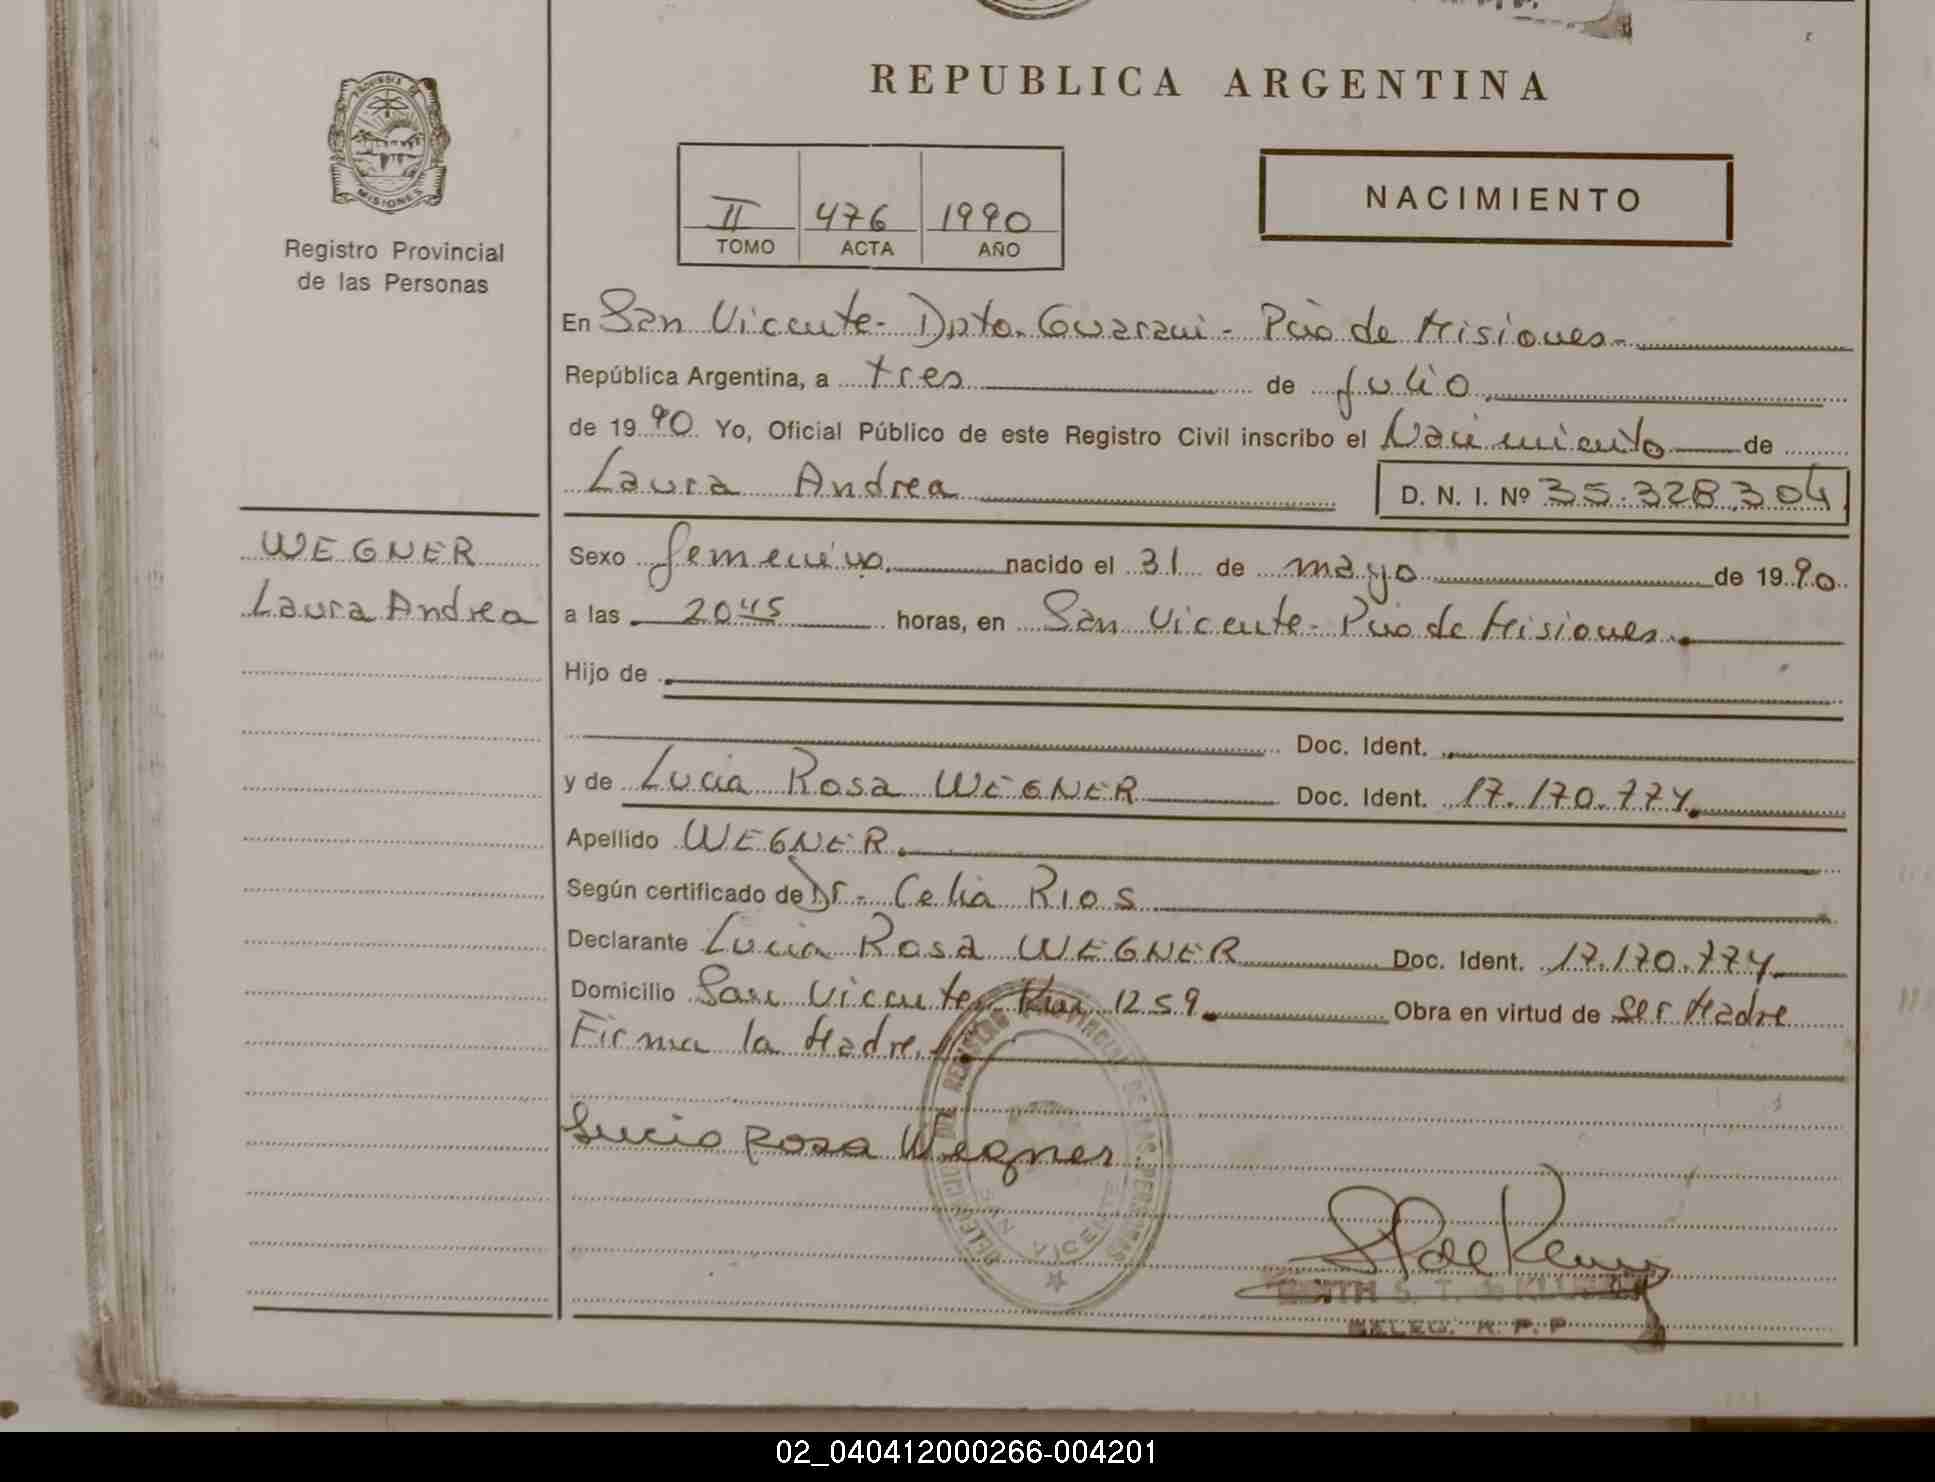 REPUBLICA ARGENTINA
PROVINCIA DE
MISIONES
Registro Provincial
de las Personas
II 476 1990
TOMO ACTA AÑO
NACIMIENTO
En San Vicente - Dpto. Guarani - Pcia de Misiones.-
República Argentina, a tres de julio
de 1990 Yo, Oficial Público de este Registro Civil inscribo el Nacimiento de
Laura Andrea D. N. I. Nº 35.328.304
WEGNER
Laura Andrea
Sexo femenino. nacido el 31 de mayo de 1990
a las 20 45 horas, en San Vicente - Pcia de Misiones.
Hijo de
Doc. Ident.
y de Lucia Rosa WEGNER Doc. Ident. 17.170.774
Apellido WEGNER.
Según certificado de Dr.- Celia RIOS
Declarante Lucia Rosa WEGNER Doc. Ident. 17.170.774
Domicilio San Vicente, Km 1259. Obra en virtud de ser Madre
Firma la Madre.
DELEGACION DEL REGISTRO PROVINCIAL DE LAS PERSONAS
SAN VICENTE
Lucia Rosa Wegner
S. T.
DELEG. R. P. P
02_040412000266-004201